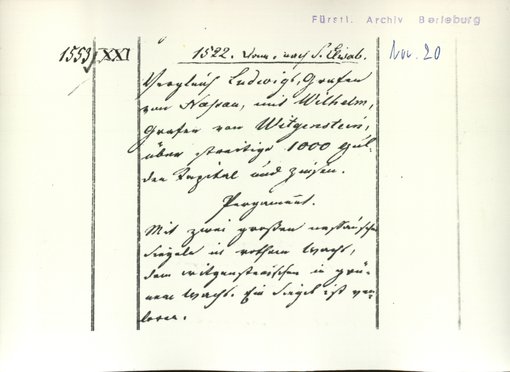 Fürstl. Archiv Berleburg
1553 XXI
1522. Donn. nach S. Elisab.
Nov. 20
Vergleich Ludwigs, Grafen
von Nassau, mit Wilhelm,
Grafen von Witgenstein,
über streitige 1000 Gul-
den Kapital und Zinsen.
Pergament.
Mit zwei großen nassauischen
Siegeln in rothem Wachs,
dem witgensteinischen in grü-
nem Wachs. Ein Siegel ist ver-
loren.